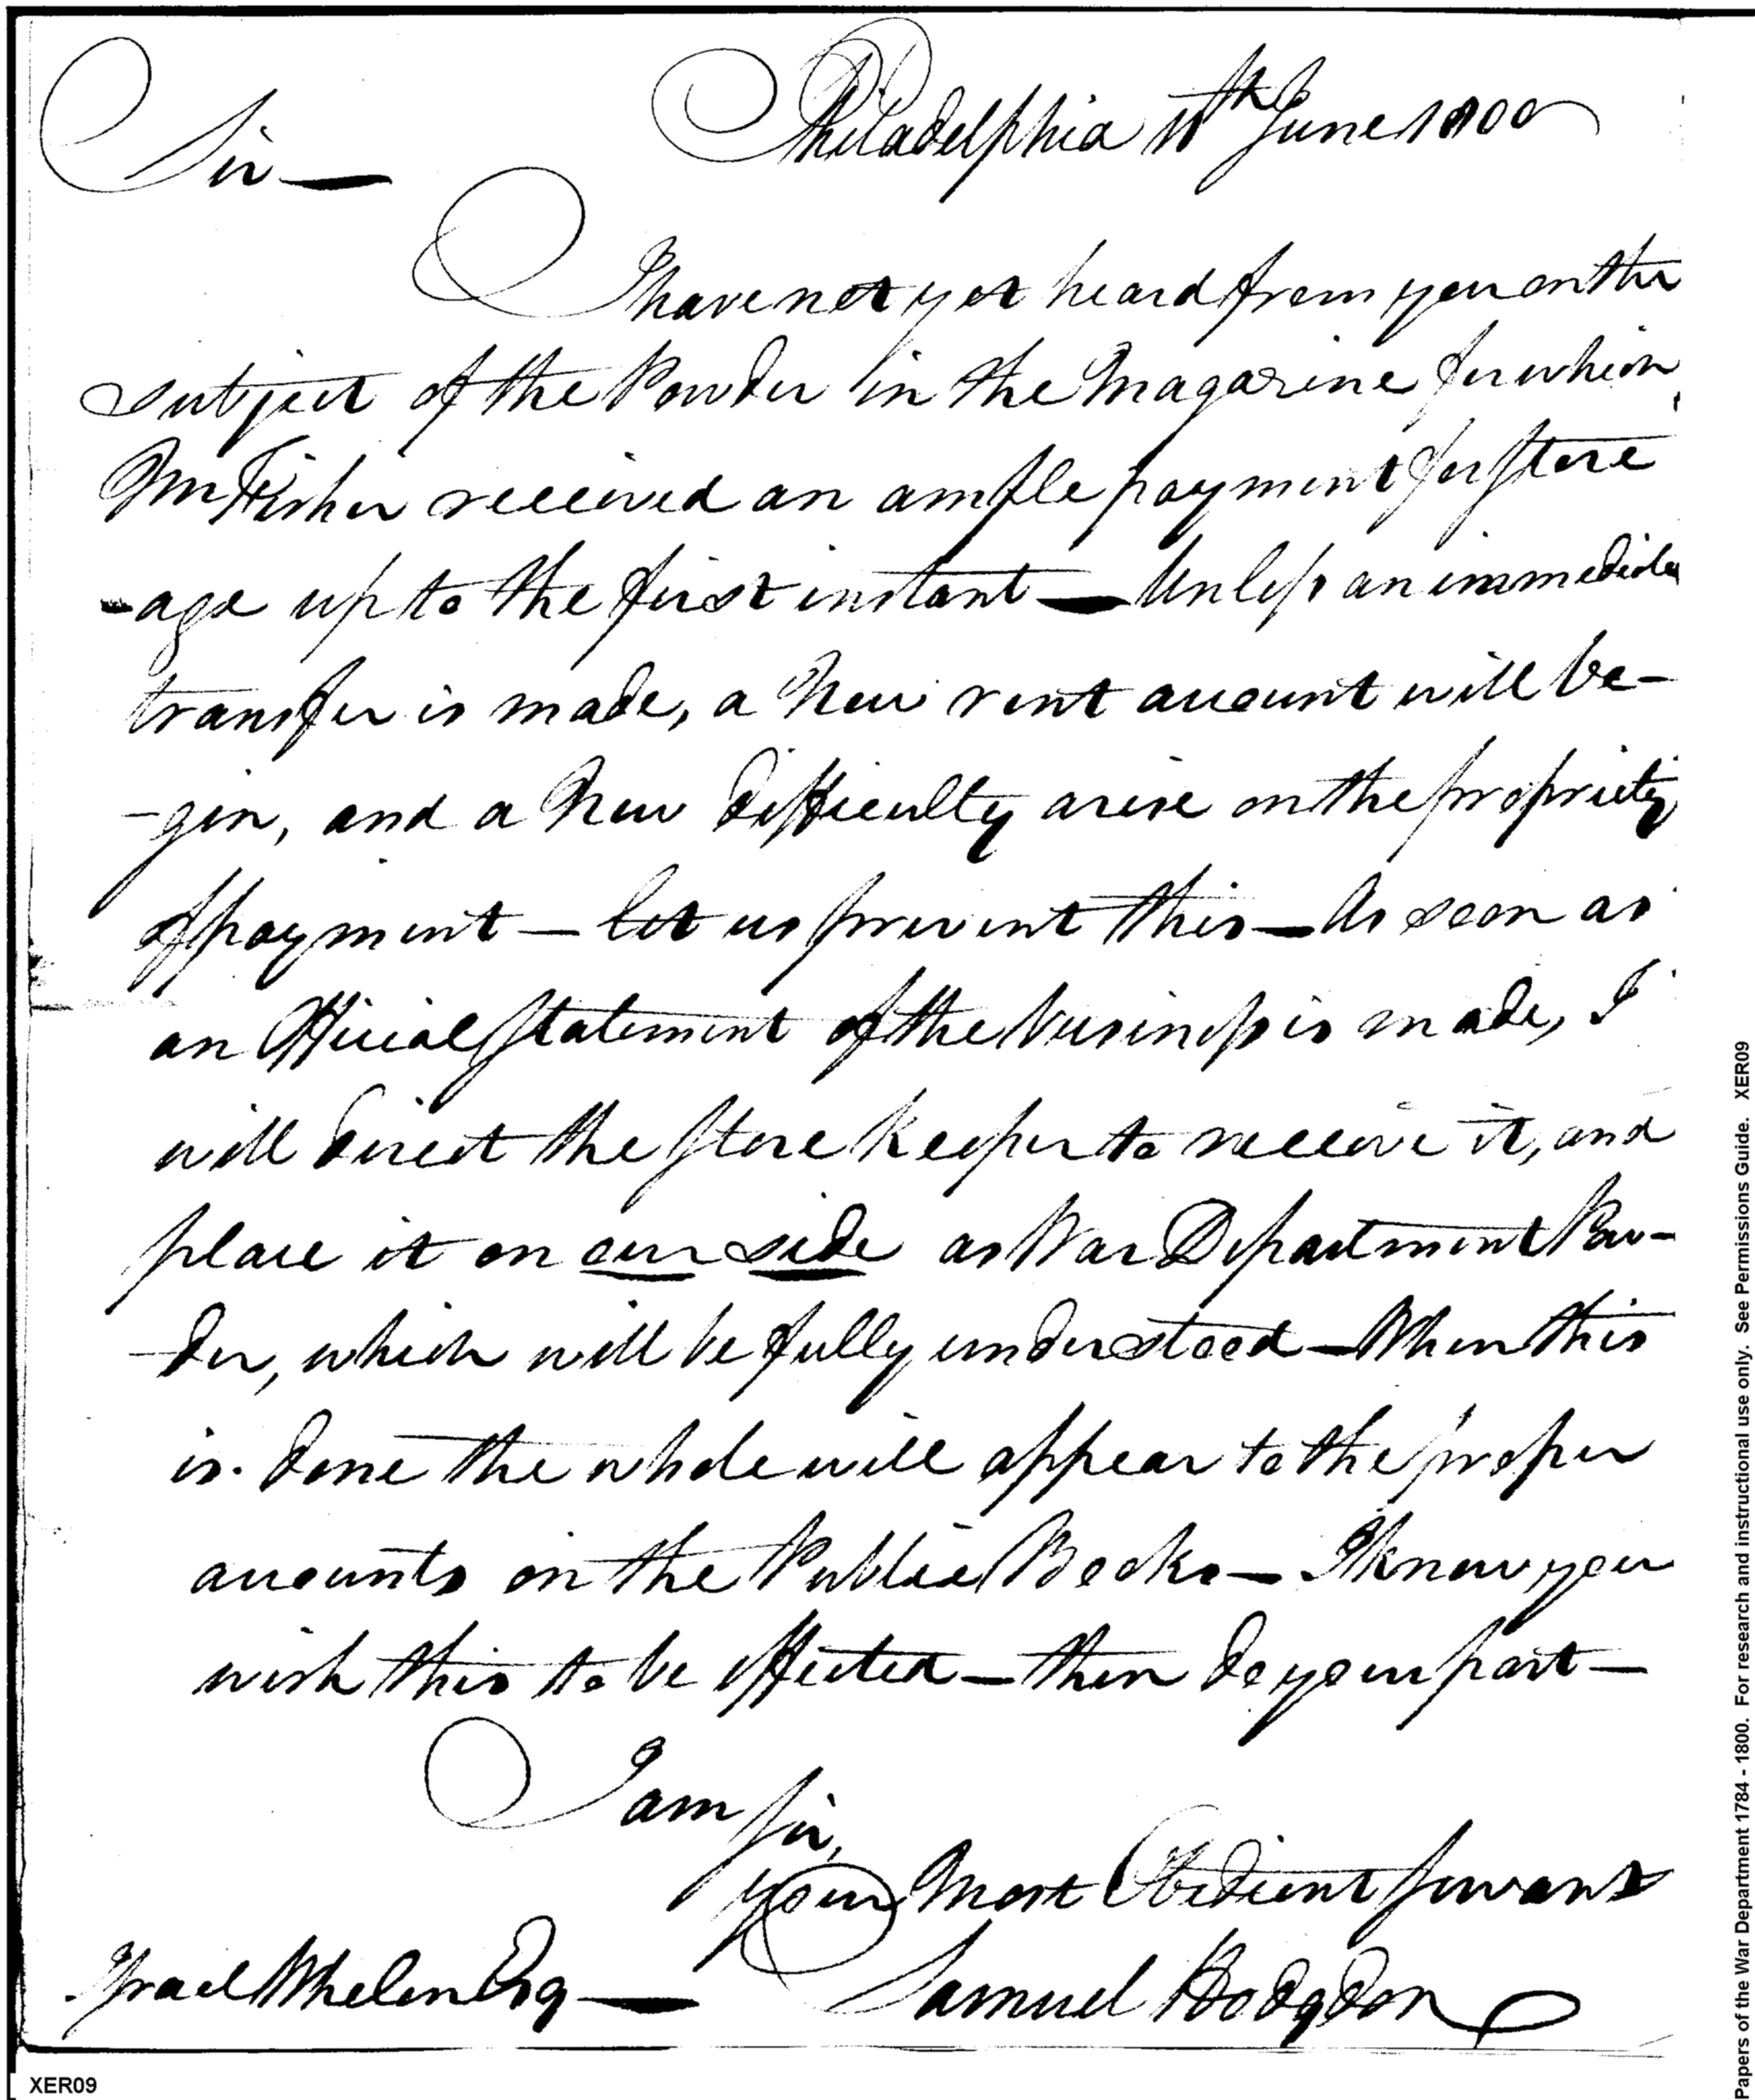 Philadelphia 11th June 1800
Sir —
I have not yet heard from you on the
subject of the Powder in the Magazine for which
Mr Fisher received an ample payment for store
-age up to the first instant — Unless an immediate
transfer is made, a New rent account will be-
-gin, and a New difficulty arise on the propriety
of payment — let us prevent this — As soon as
an Official Statement of the business is made, I
will direct the Store Keeper to receive it, and
place it on our side as War Department Pow-
-der, which will be fully understood — When this
is done the whole will appear to the proper
accounts on the Public Books — I know you
wish this to be effected — then do your part —
I am Sir,
your Most Obedient Servant
Samuel Hodgdon
Israel Whelen Esq —
XER09
Papers of the War Department 1784 - 1800. For research and instructional use only. See Permissions Guide. XER09